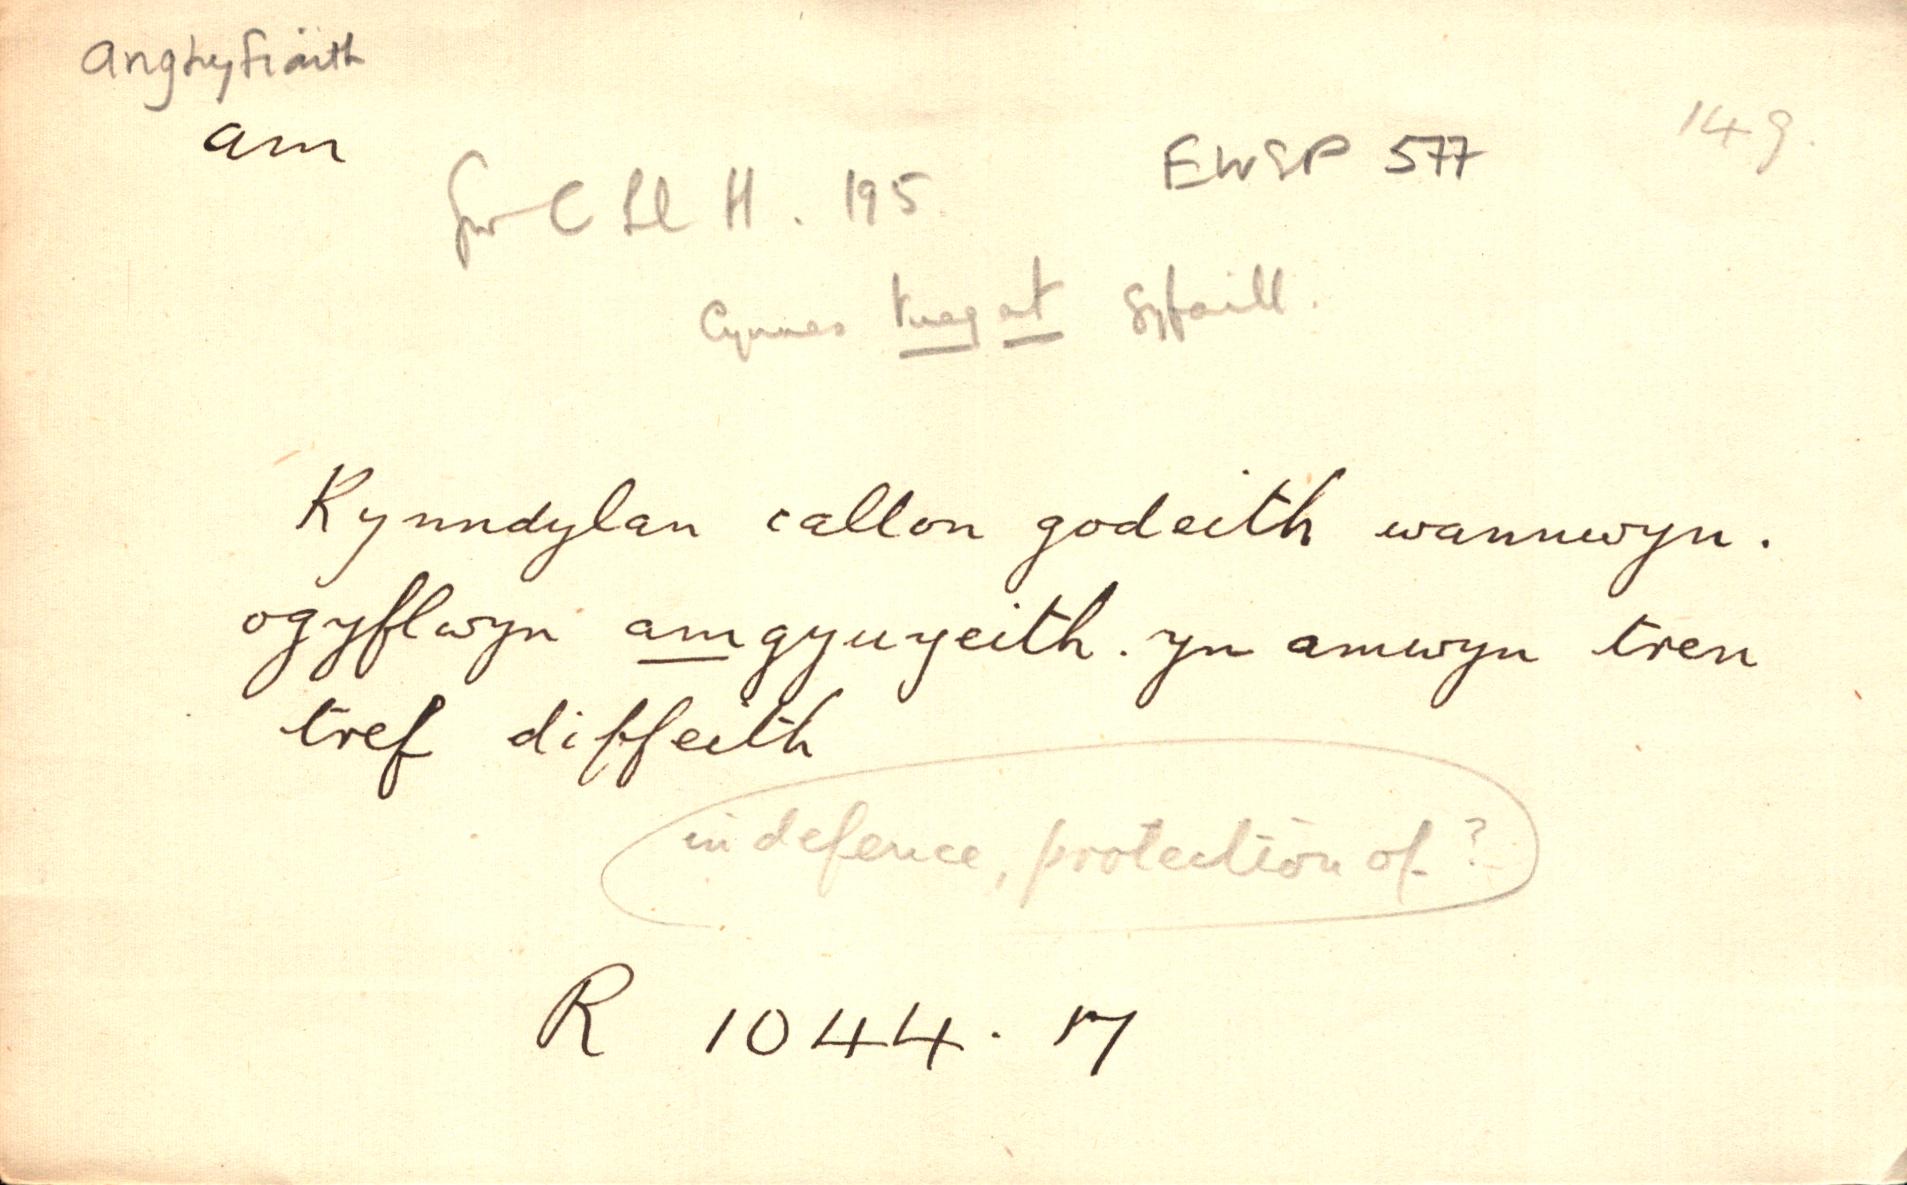 anghyfiaith
am
EWSP 577
149.
Gw C Ll H. 195
Cynnes tuag at gyfaill.
Kynndylan callon godeith wannwyn.
ogyflwyn amgyuyeith. yn amwyn tren
tref diffeith
in defence, protection of?
R 1044. 17